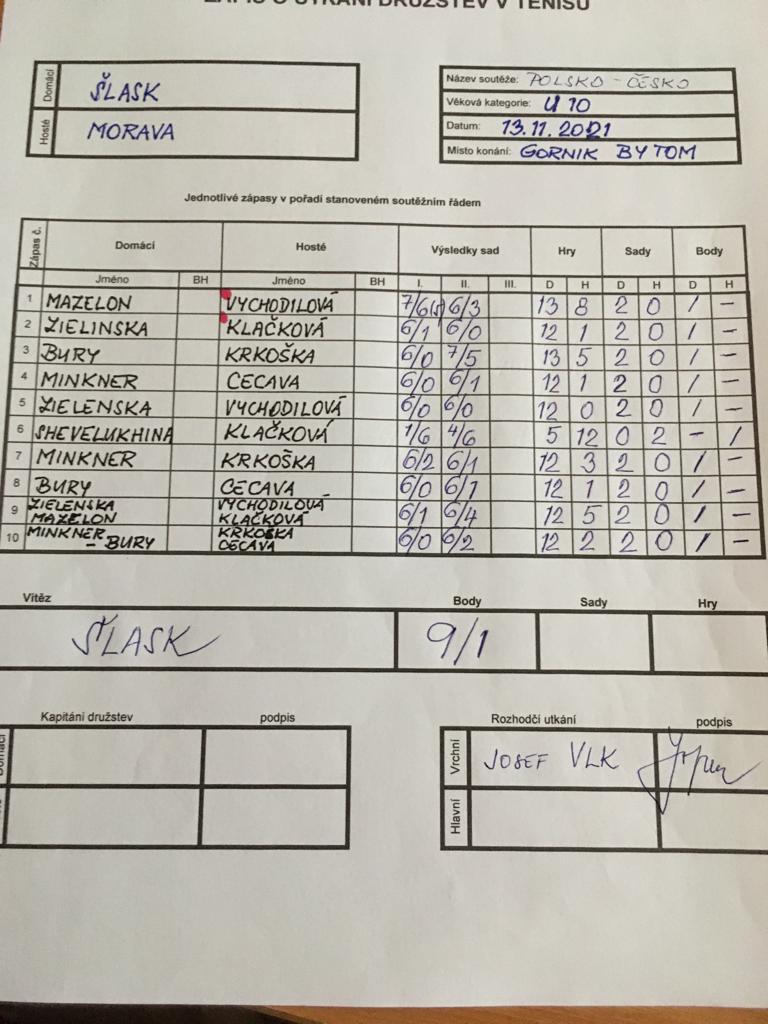 ZÁPIS O UTKÁNÍ DRUŽSTEV V TENISU
Domácí ŠLASK
Hosté MORAVA
Název soutěže: POLSKO - ČESKO
Věková kategorie: U 10
Datum: 13.11.2021
Místo konání: GORNIK BYTOM
Jednotlivé zápasy v pořadí stanoveném soutěžním řádem
Zápas č. Domácí Hosté Výsledky sad Hry Sady Body
Jméno BH Jméno BH I. II. III. D H D H D H
1 MAZELON VYCHODILOVÁ 7/6(5) 6/3 13 8 2 0 / —
2 ZIELINSKA KLAČKOVÁ 6/1 6/0 12 1 2 0 / —
3 BURY KRKOŠKA 6/0 7/5 13 5 2 0 / —
4 MINKNER CECAVA 6/0 6/1 12 1 2 0 / —
5 ZIELENSKA VYCHODILOVÁ 6/0 6/0 12 0 2 0 / —
6 SHEVELUKHINA KLAČKOVÁ 1/6 4/6 5 12 0 2 — /
7 MINKNER KRKOŠKA 6/2 6/1 12 3 2 0 / —
8 BURY CECAVA 6/0 6/1 12 1 2 0 / —
9 ZIELENSKA MAZELON VYCHODILOVÁ KLAČKOVÁ 6/1 6/4 12 5 2 0 / —
10 MINKNER - BURY KRKOŠKA CECAVA 6/0 6/2 12 2 2 0 / —
Vítěz Body Sady Hry
ŠLASK 9/1
Kapitáni družstev podpis
Rozhodčí utkání podpis
Vrchní JOSEF VLK
Hlavní